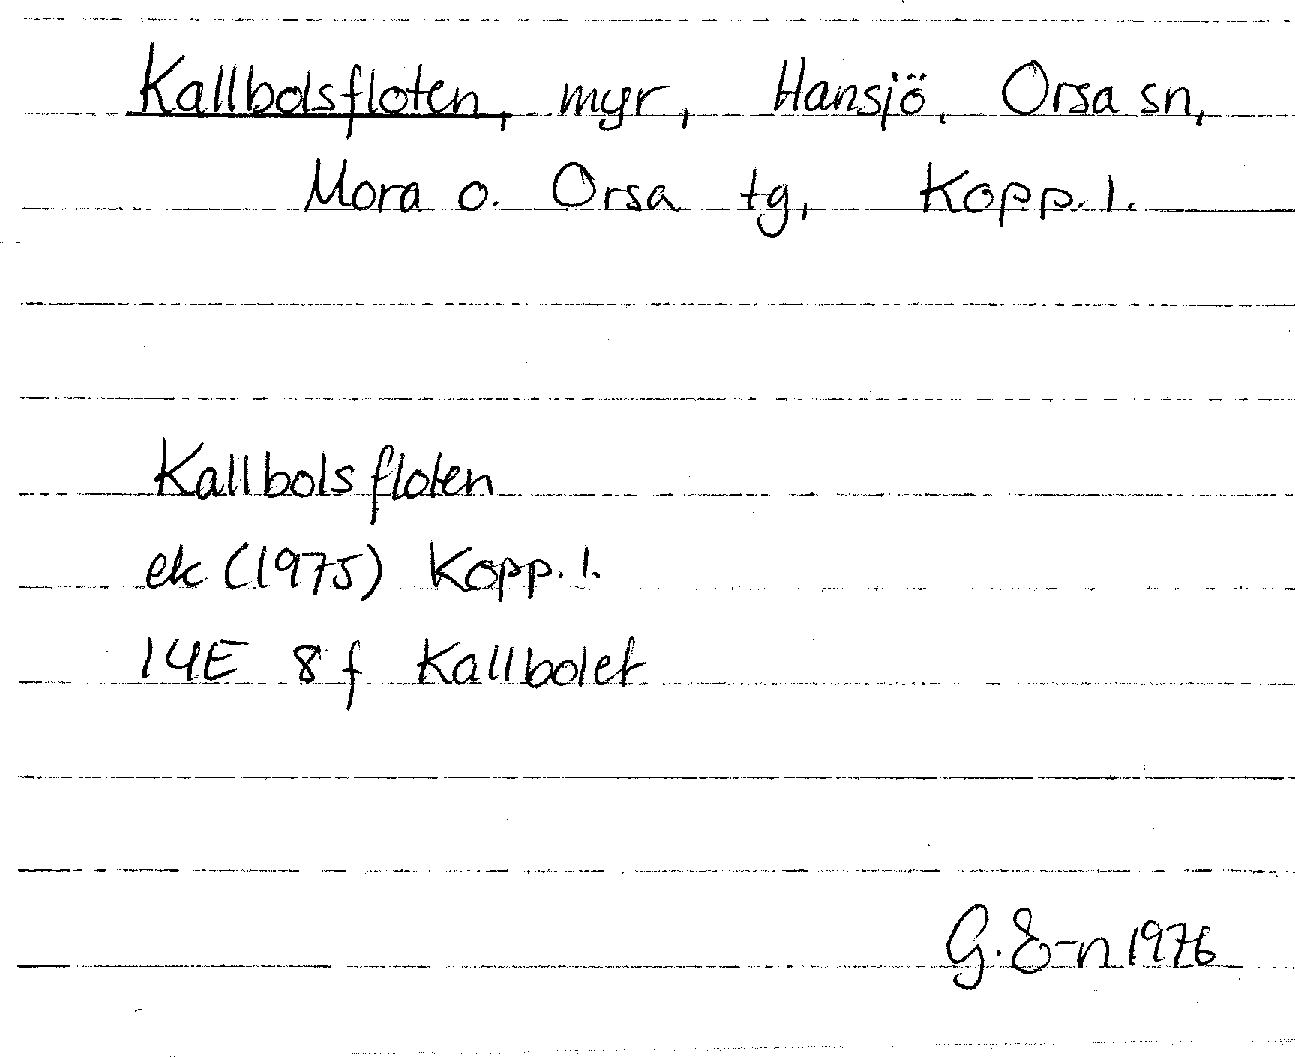 Kallbolsfloten, myr, Hansjö, Orsa sn,
Mora o. Orsa tg, Kopp. l.
Kallbolsfloten
ek (1975) Kopp. l.
14E 8f Kallbolet
G. E-n 1976